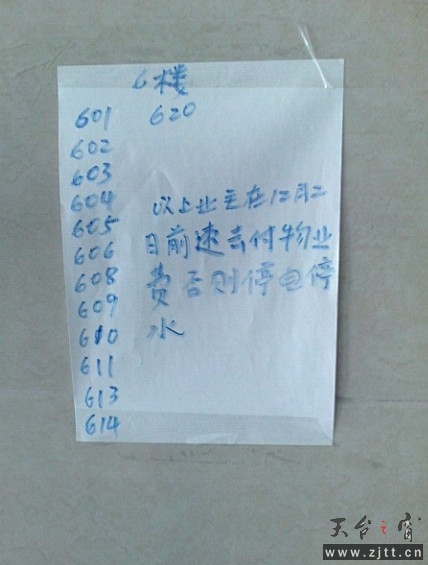 6楼
601 620
602
603
604
605
606
608
609
610
611
613
614
以上业主在12月二
日前速去付物业
费否则停电停
水
天台之窗
www.zjtt.cn